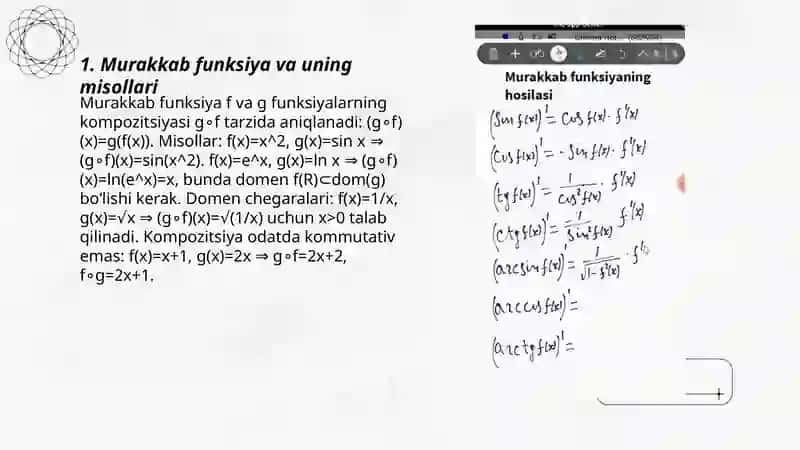 1. Murakkab funksiya va uning
misollari
Murakkab funksiya f va g funksiyalarning
kompozitsiyasi g∘f tarzida aniqlanadi: (g∘f)
(x)=g(f(x)). Misollar: f(x)=x^2, g(x)=sin x ⇒
(g∘f)(x)=sin(x^2). f(x)=e^x, g(x)=ln x ⇒ (g∘f)
(x)=ln(e^x)=x, bunda domen f(R)⊂dom(g)
bo'lishi kerak. Domen chegaralari: f(x)=1/x,
g(x)=√x ⇒ (g∘f)(x)=√(1/x) uchun x>0 talab
qilinadi. Kompozitsiya odatda kommutativ
emas: f(x)=x+1, g(x)=2x ⇒ g∘f=2x+2,
f∘g=2x+1.
Murakkab funksiyaning
hosilasi
(sin f(x))' = cos f(x) · f'(x)
(cos f(x))' = - sin f(x) · f'(x)
(tg f(x))' = 1/cos² f(x) · f'(x)
(ctg f(x))' = -1/sin² f(x) f'(x)
(arcsin f(x))' = 1/√1-f²(x) · f'
(arccos f(x))' =
(arctg f(x))' =